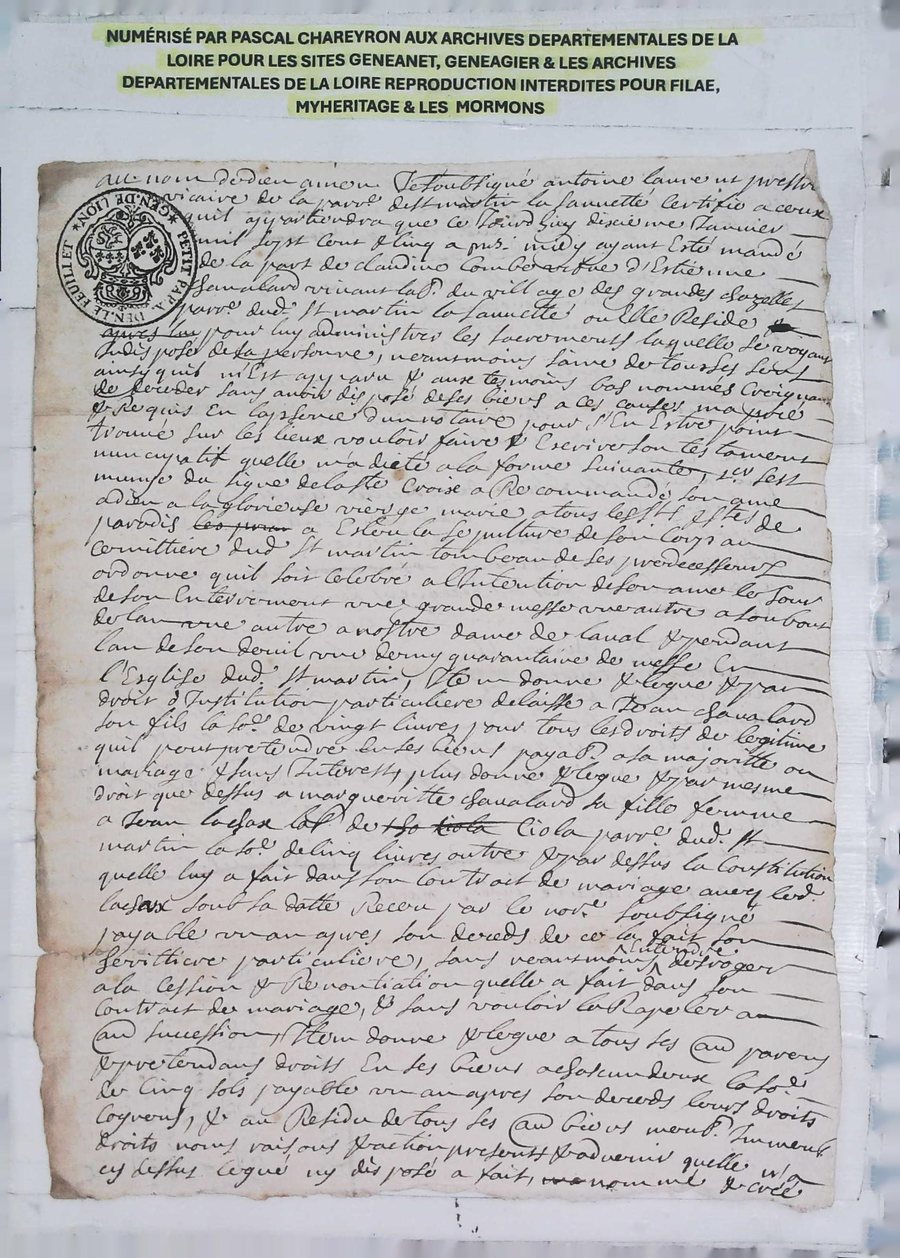 NUMÉRISÉ PAR PASCAL CHAREYRON AUX ARCHIVES DEPARTEMENTALES DE LA
LOIRE POUR LES SITES GENEANET, GENEAGIER & LES ARCHIVES
DEPARTEMENTALES DE LA LOIRE REPRODUCTION INTERDITES POUR FILAE,
MYHERITAGE & LES MORMONS
GEN. DE LION ★ PETIT PAP. A DEN. LE FEUILLET ★
au nom de dieu amen Je soubsigné antoine laurent prestre
vicaire de la parre de st martin la sauvette Certifie a ceux
quil appartiendra que ce Jourdhuy dixieme Janvier
mil sept cent & cinq apres midy ayant Esté mandé
de la part de claudine Combe vefve d'Estienne
Chavalard vivant lab. du village des grandes chazelles
parre dud. St martin la sauvette ou Elle Reside
pour luy administrer les sacrements laquelle se voyant
Indisposée de sa personne, neansmoins saine de tous ses sens
ainsy quil m'Est apparu & aux tesmoins bas nommés Creignant
de deceder sans avoir disposé de ses biens a ces causes ma prié
& Requis En l'absence d'un notaire pour s'En Estre point
trouvé sur les lieux vouloir faire & Escrire son testament
nuncupatif quelle m'a dicté a la forme suivante, s'est
munye du signe de la ste Croix a Recommandé son ame
a dieu a la glorieuse vierge marie a tous les sts & stes de
paradis a Esleu la sepulture de son corps au
cemittière dud. St martin tombeau de ses predecesseurs
ordonne quil soit celebré a l'Intention de son ame le Jour
de son Enterrement une grande messe une autre a son bout
de lan une autre a nostre dame de laval & pendant
l'an de son deuil une demy quarantaine de messe En
l'Esglise dud. St martin, Item donne & legue & par
droit d'Institution particuliere delaisse a Jean chavalard
son fils la so.e de vingt livres pour tous les droits de legitime
quil peut pretendre En ses biens payab. a sa majoritté ou
mariage & sans Interests, plus donne & legue & par mesme
droit que dessus a margueritte chavalard sa fille femme
a Jean lachax lab. de Ciola parre dud. St
martin la so.e de cinq livres outre & par dessus la Constitution
quelle luy a fait dans son Contrait de mariage avecq led.
lachax soub sa datte Receu par le nore soubsigné
payable un an apres son deceds de ce la fait son
herittiere particuliere, sans neansmoins entendre desroger
a la Cession & Renontiation quelle a fait dans son
Contrait de mariage, & sans vouloir la Rapeler a
succession, Item donne & legue a tous ses au parens
& pretendans droits En ses biens a chascun deux la so.e
de Cinq sols payable un an apres son deceds leurs droits
Cogneus, & au Residu de tous ses au biens meub. Immeub.
droits noms raisons & actions presents & advenir quelle n'a
cy dessus legué ny disposé a fait, nommé & créé